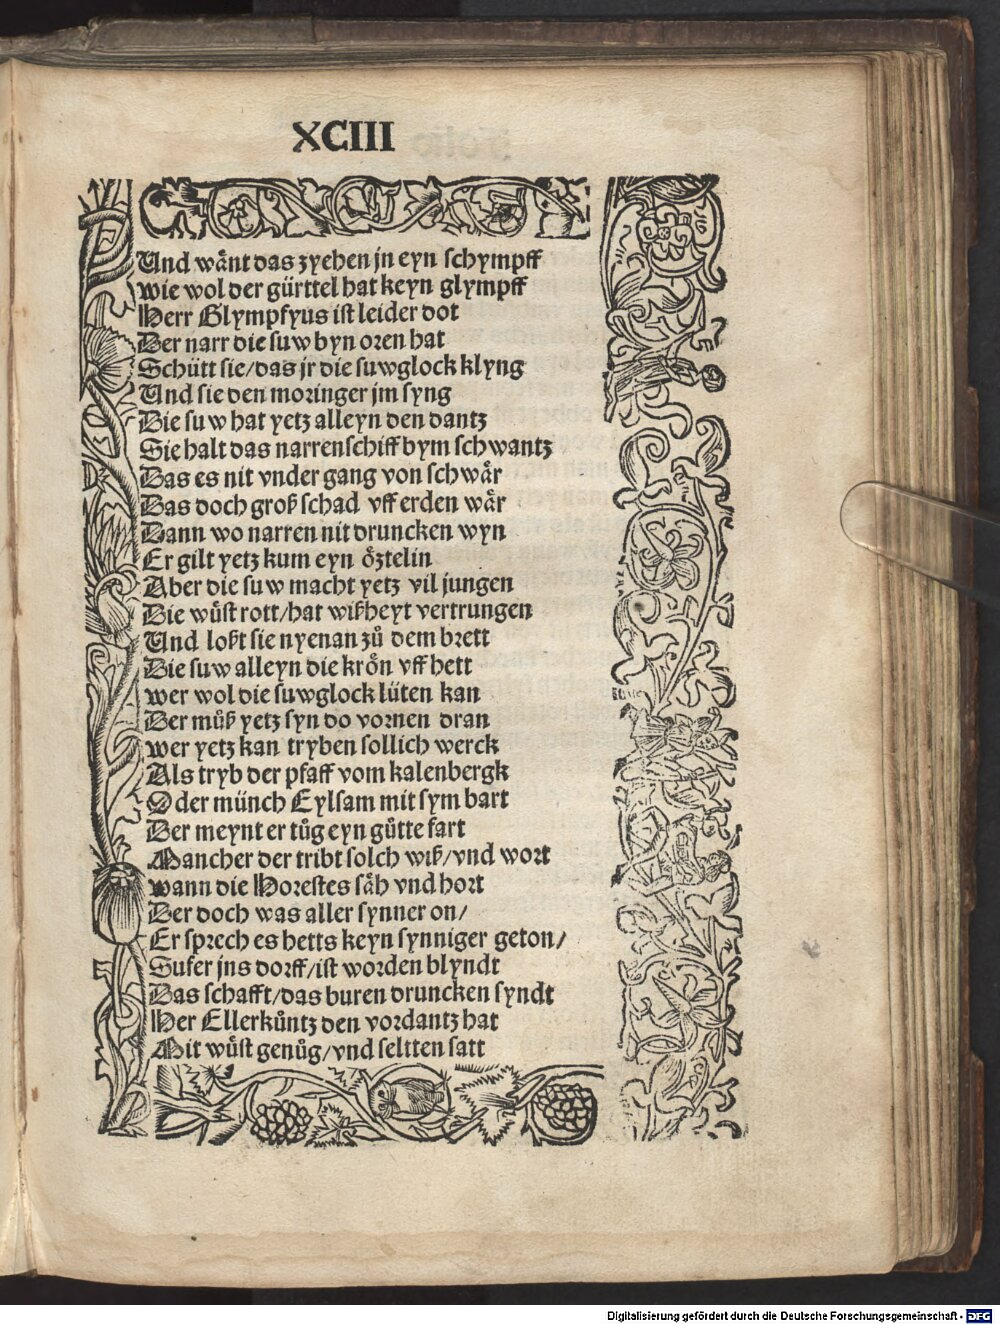 XCIII
Und wånt das zyehen jn eyn schympff
wie wol der gürttel hat keyn glympff
Herr Glympfyus ist leider dot
Der narr die suw byn oren hat
Schütt sie/das jr die suwglock klyng
Und sie den moringer jm syng
Die suw hat yetz alleyn den dantz
Sie halt das narrenschiff bym schwantz
Das es nit vnder gang von schwår
Das doch groß schad vff erden wår
Dann wo narren nit druncken wyn
Er gilt yetz kum eyn o̊rtelin
Aber die suw macht yetz vil jungen
Die wůst rott/hat wißheyt vertrungen
Und loßt sie nyenan zů dem brett
Die suw alleyn die kro̊n vff hett
wer wol die suwglock lüten kan
Der můß yetz syn do vornen dran
wer yetz kan tryben sollich werck
Als tryb der pfaff vom kalenbergk
Oder münch Eylsam mit sym bart
Der meynt er tůg eyn gůtte fart
Mancher der tribt solch wiß/vnd wort
wann die Horestes såh vnd hort
Der doch was aller synner on/
Er sprech es hetts keyn synniger geton/
Sufer jns dorff/ist worden blyndt
Das schafft/das buren druncken syndt
Her Ellerkůntz den vordantz hat
Mit wůst genůg/vnd seltten satt
Digitalisierung gefördert durch die Deutsche Forschungsgemeinschaft - DFG